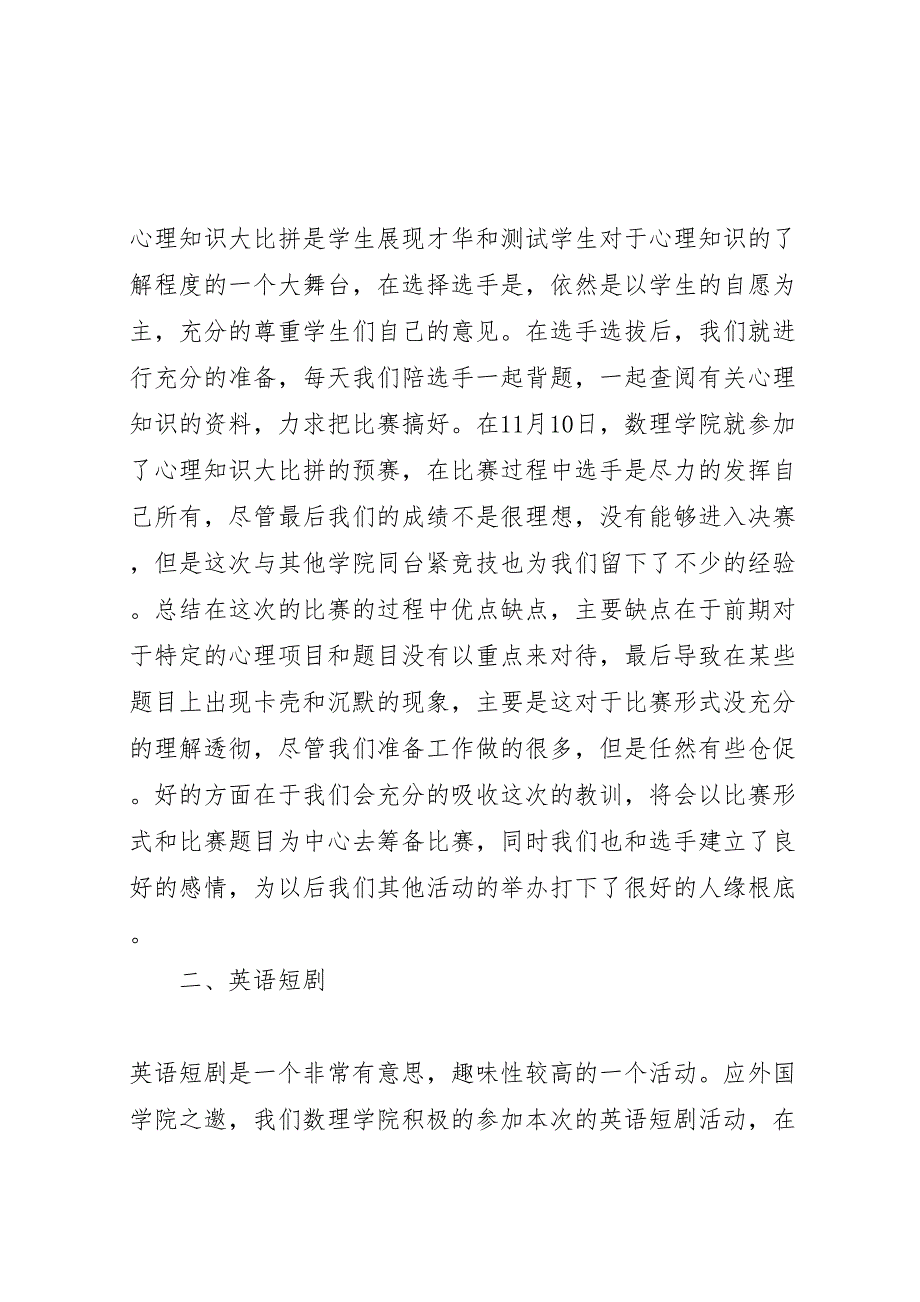 心理知识大比拼是学生展现才华和测试学生对于心理知识的了
解程度的一个大舞台，在选择选手是，依然是以学生的自愿为
主，充分的尊重学生们自己的意见。在选手选拔后，我们就进
行充分的准备，每天我们陪选手一起背题，一起查阅有关心理
知识的资料，力求把比赛搞好。在11月10日，数理学院就参加
了心理知识大比拼的预赛，在比赛过程中选手是尽力的发挥自
己所有，尽管最后我们的成绩不是很理想，没有能够进入决赛
，但是这次与其他学院同台紧竞技也为我们留下了不少的经验
。总结在这次的比赛的过程中优点缺点，主要缺点在于前期对
于特定的心理项目和题目没有以重点来对待，最后导致在某些
题目上出现卡壳和沉默的现象，主要是这对于比赛形式没充分
的理解透彻，尽管我们准备工作做的很多，但是任然有些仓促
。好的方面在于我们会充分的吸收这次的教训，将会以比赛形
式和比赛题目为中心去筹备比赛，同时我们也和选手建立了良
好的感情，为以后我们其他活动的举办打下了很好的人缘根底
。
二、英语短剧
英语短剧是一个非常有意思，趣味性较高的一个活动。应外国
学院之邀，我们数理学院积极的参加本次的英语短剧活动，在